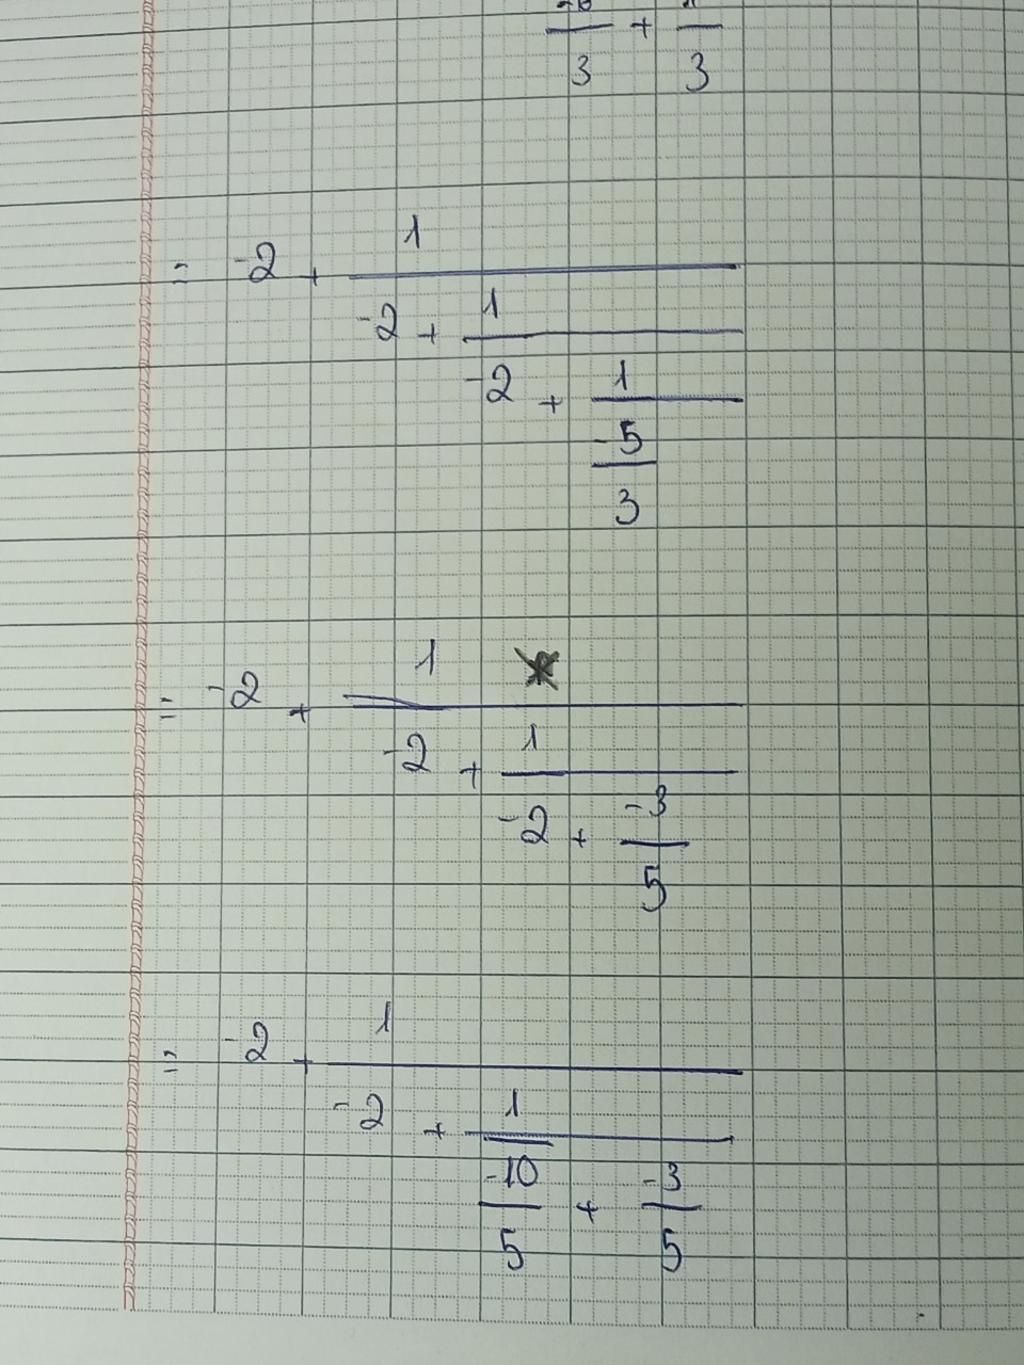 +
3 3
= -2 + 1
-2 + 1
-2 + 1
-5
3
= -2 + 1
-2 + 1
-2 + -3
5
= -2 + 1
-2 + 1
-10 + -3
5 5